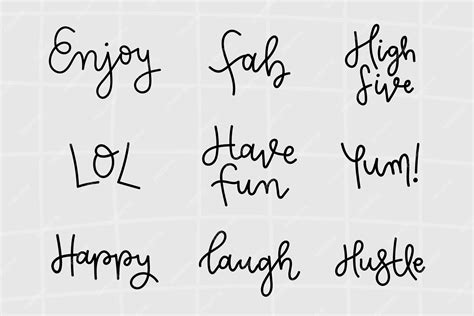 Enjoy
fab
High
five
LOL
Have
fun
Yum!
Happy
laugh
Hustle